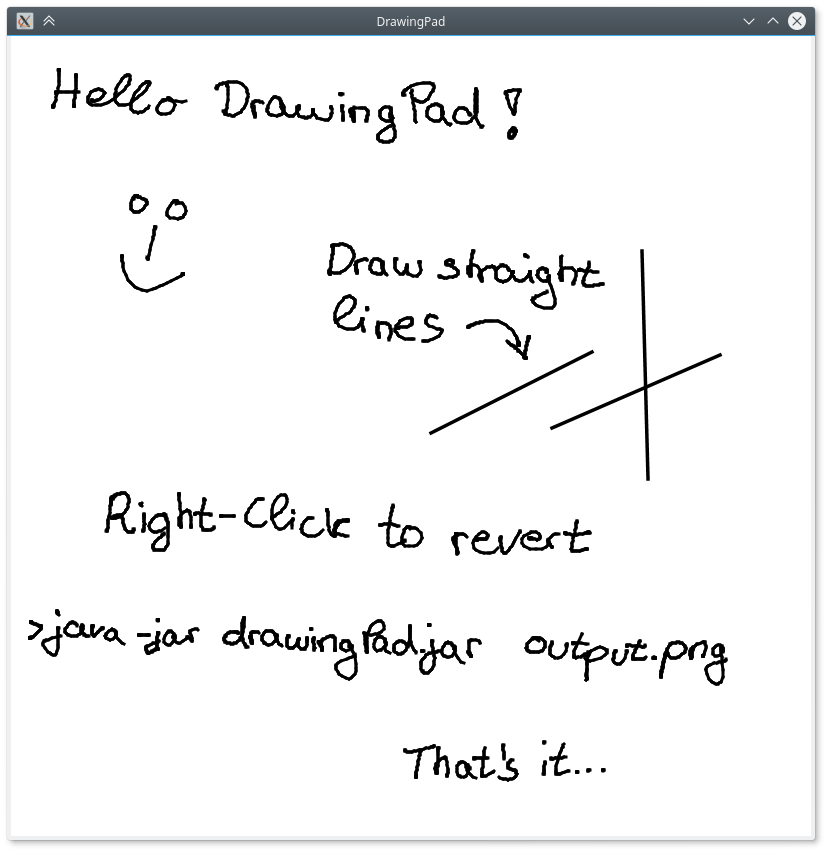 DrawingPad
Hello DrawingPad!
Draw straight
lines
Right-Click to revert
>java -jar drawingPad.jar output.png
That's it...